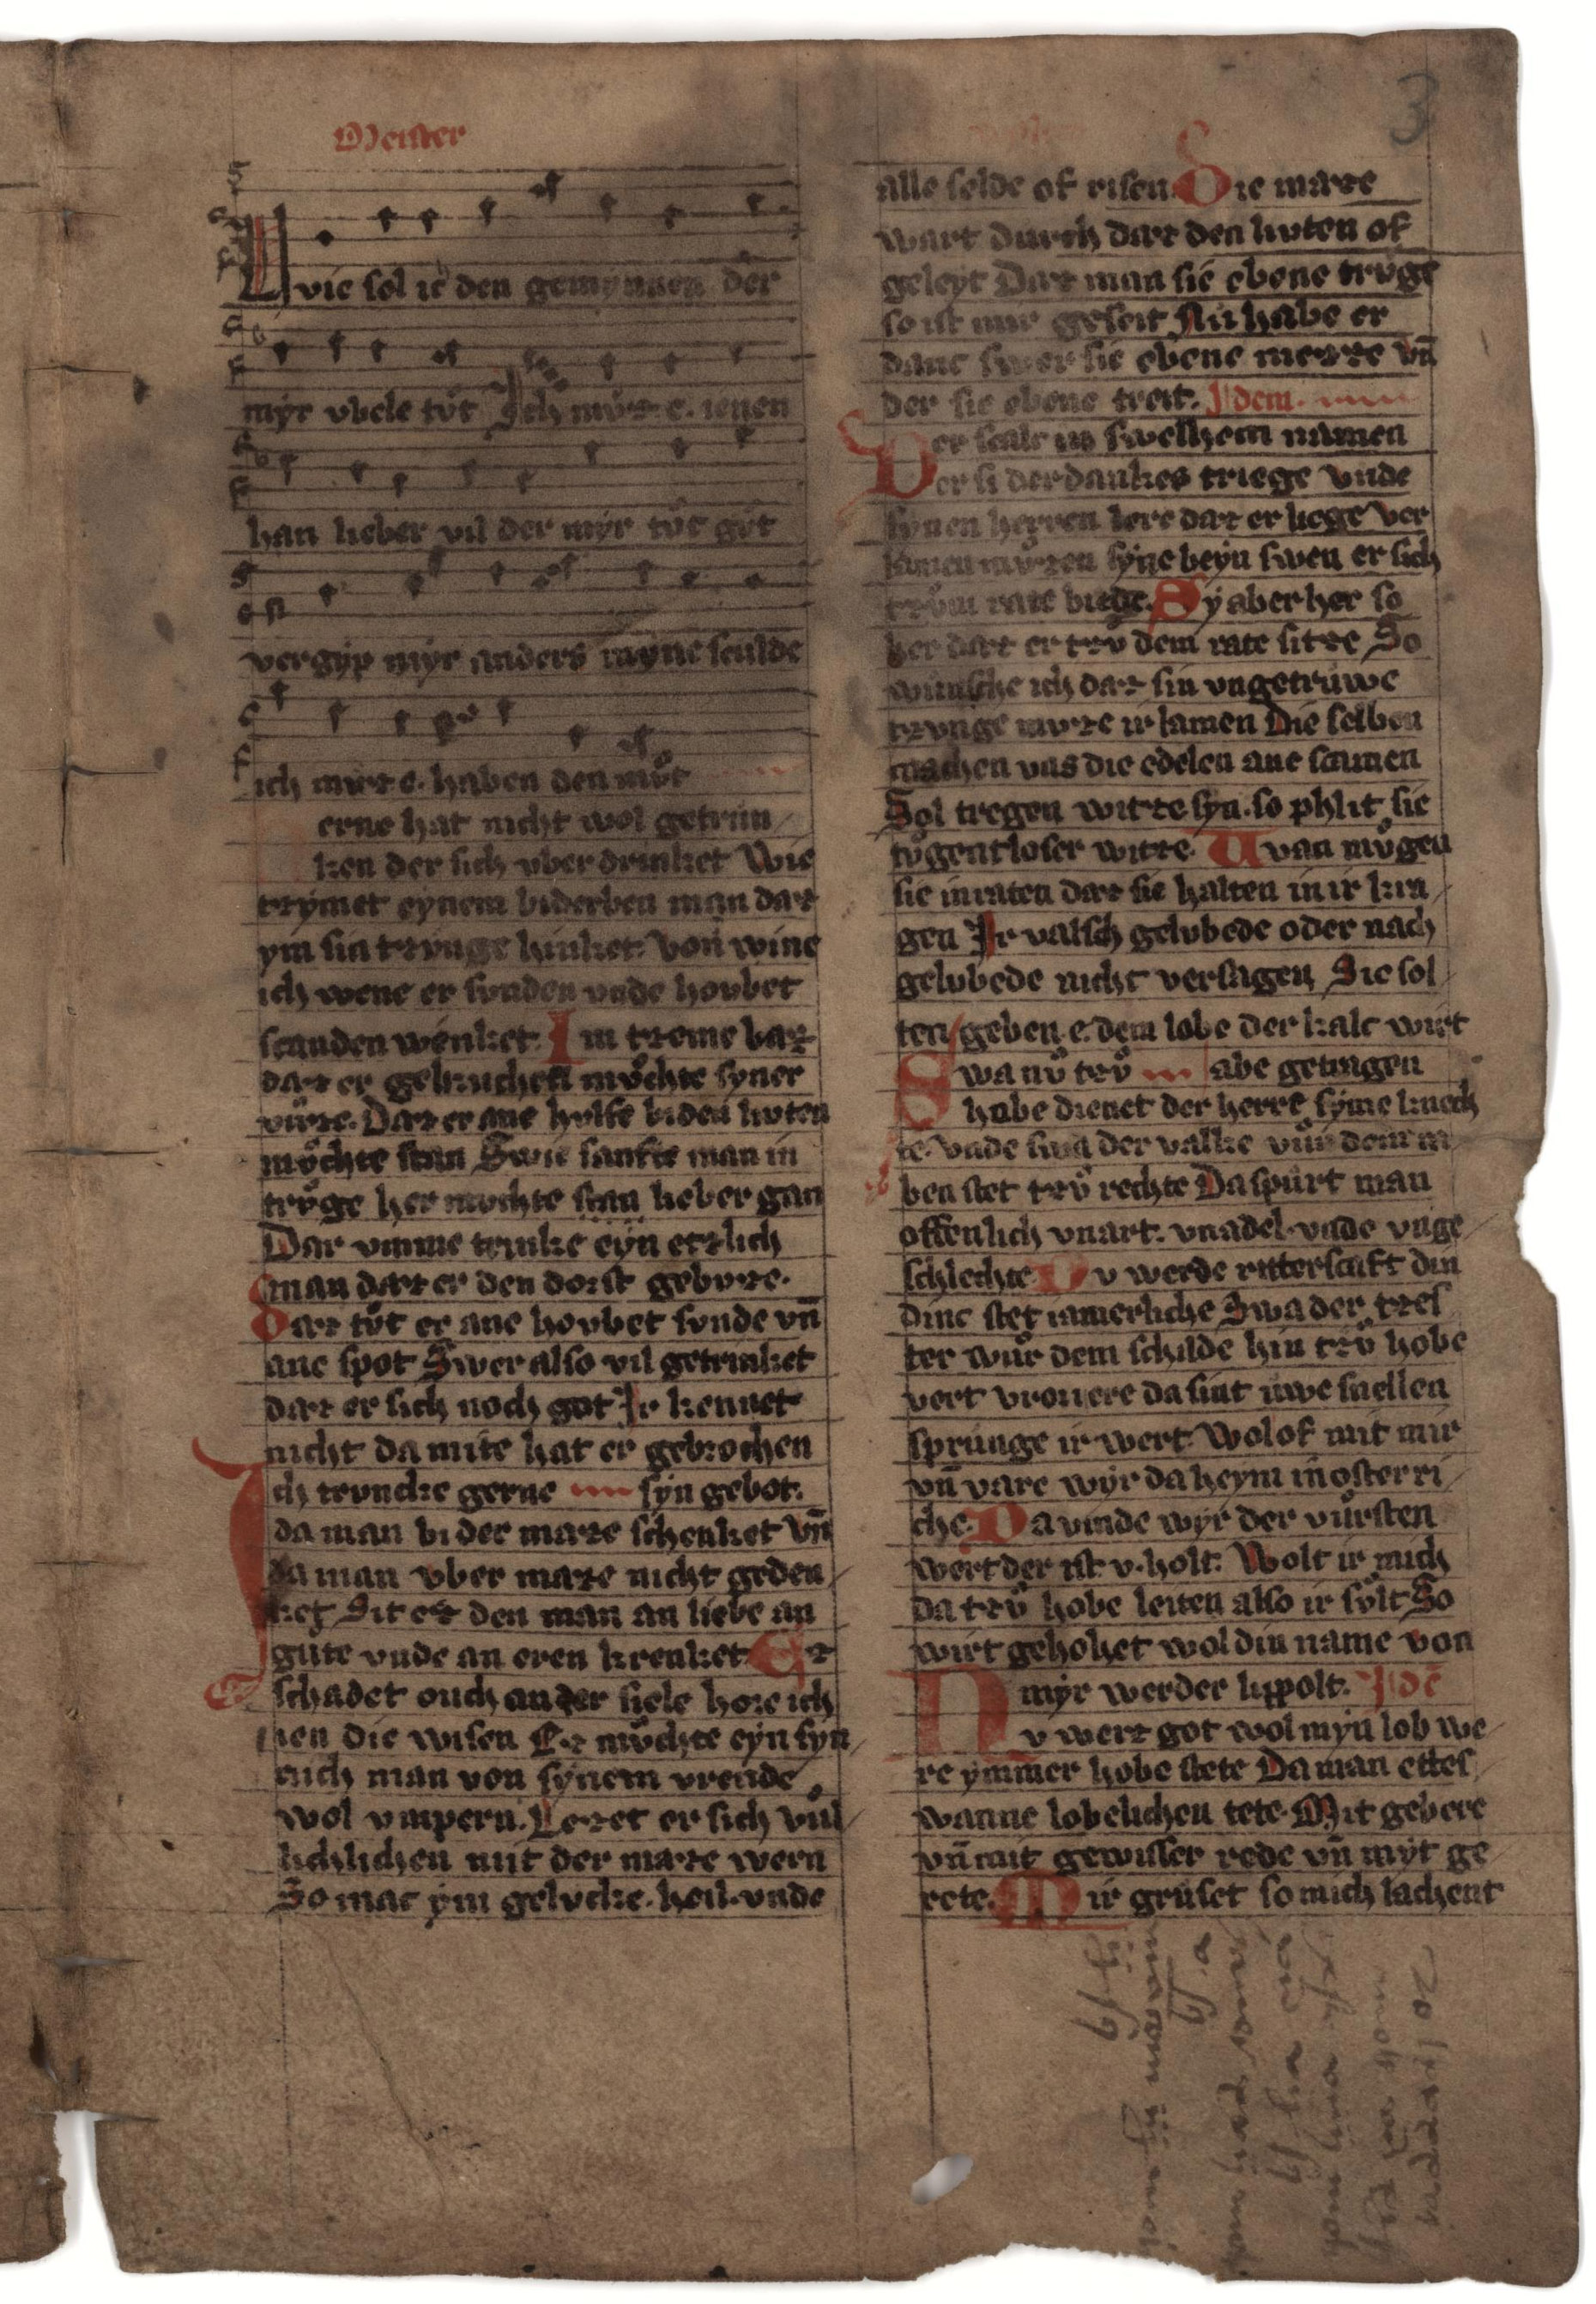 Meister
3
Wie sol ich den gemynnen der
myr vbele tůt Ich můz e. ienen
han lieber vil der myr tůt gůt
vergyz myr anders myne sculde
ich můz e. haben den můt
erne hat nicht wol getrun
ken der sich vber drinket Wie
tzymet eynem biderben man daz
ym sin tzunge hinket. Von wine
ich wene er sunden vnde houbet
scanden wenket. Im tzeme baz
daz er gebruchen mochte syner
vůze. Daz er ane hulfe bi den luten
mochte stan Swie sanfte man in
trůge her mochte stan lieber gan
Dar vmme trinke eyn etzlich
man daz er den dorst gebuze.
Daz tůt er ane houbet sunde vñ
ane spot Swer also vil getrinket
daz er sich noch got Ir kennet
nicht da mite hat er gebrochen
Ich truncke gerne syn gebot.
da man bi der maze schenket vñ
da man vber maze nicht geden
ket Sit er den man an liebe an
gute vnde an eren krenket Er
schadet ouch an der siele hore ich
ien die wisen Er mochte eyn syn
cuch man von synem vrende
wol vmpern. Lezet er sich vůl
lichlichen mit der maze wern
So mac ym gelucke. heil. vnde
alle selde of risen Die maze
wart durch daz den luten of
geleyt Daz man sie ebene trůge
so ist mir geseit Nů habe er
danc swer sie ebene mezze vñ
der sie ebene treit. Idem.
Der scalc in swelhem namen
er si der dankes triege vnde
synen herren lere daz er liege Ver
lamen můzen syne beyn swen er sich
tzům rate biege. Sy aber her so
her daz er tzů dem rate sitze So
wunsche ich daz sin vngetruwe
tzunge muze ir lamen Die selben
machen vns die edelen ane scamen
Sol tregen witze syn. so phlit sie
tůgentloser witze. Wan můgen
sie in raten daz sie halten in ir kra
gen Ir valsch gelubede oder nach
gelubede nicht versagen Sie sol
ten geben. e. dem lobe der kalc wirt
Swa nů tzů abe getragen
hobe dienet der herre syme knech
te. vnde swa der valke vůr dem ra
ben stet tzů rechte Da spurt man
offenlich vnart. vnadel. vnde vnge
schlechte. Du werde ritterscaft din
dinc stet iamerliche Swa der tzes
ter wůr dem schilde hin tzů hobe
vert vrouere da sint uwe snellen
sprunge ir wert. Wol of mit mir
vñ vare wyr da heym in osterri
che. Da vinde wyr der vůrsten
wert der ist v. holt. Wolt ir mich
da tzů hobe leiten also ir sůlt So
wirt gehohet wol din name von
myr werder lippolt. Idē
Nu wert got wol myn lob we
re ymmer hobe stete Da man ettes
wanne lobelichen tete. Mit gebere
vñ mit gewisser rede vñ myt ge
rete. Mir gruset so mich lachent